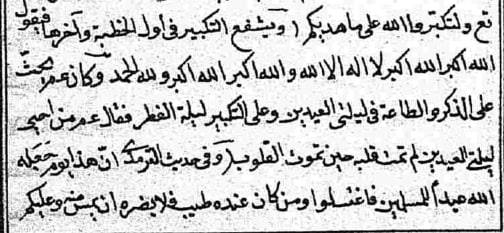 تع ولتكبروا الله على ما هديكم (ويشفع التكبير في اول الخطبة وآخرها فيقول
الله اكبر الله اكبر لا اله الا الله والله اكبر الله اكبر ولله الحمد وكان عمر يحث
على الذكر والطاعة في ليلتي العيدين وعلى التكبير ليلة الفطر فقال عمر من احيى
ليلتي العيدين لم تمت قلبه حين تموت القلوب (وفي حديث ان هذا يوم جعله
الله عيداً للمسلمين فاغتسلوا ومن كان عنده طيب فلا يضره ان يمس منه وعليكم